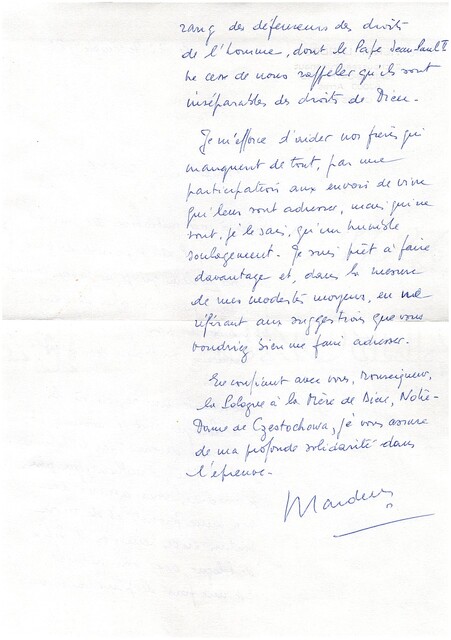 rang des défenseurs des droits
de l'homme, dont le Pape Jean Paul II
ne cesse de nous rappeler qu'ils sont
inséparables des droits de Dieu.
Je m'efforce d'aider nos frères qui
manquent de tout, par une
participation aux envois de vivres
qui leur sont adressés, mais qui ne
sont, je le sais, qu'un humble
soulagement. Je suis prêt à faire
davantage et, dans la mesure
de mes modestes moyens, en me
référant aux suggestions que vous
voudriez bien me faire adresser.
En confiant avec vous, Monseigneur,
la Pologne à la Mère de Dieu, Notre-
Dame de Częstochowa, je vous assure
de ma profonde solidarité dans
l'épreuve.